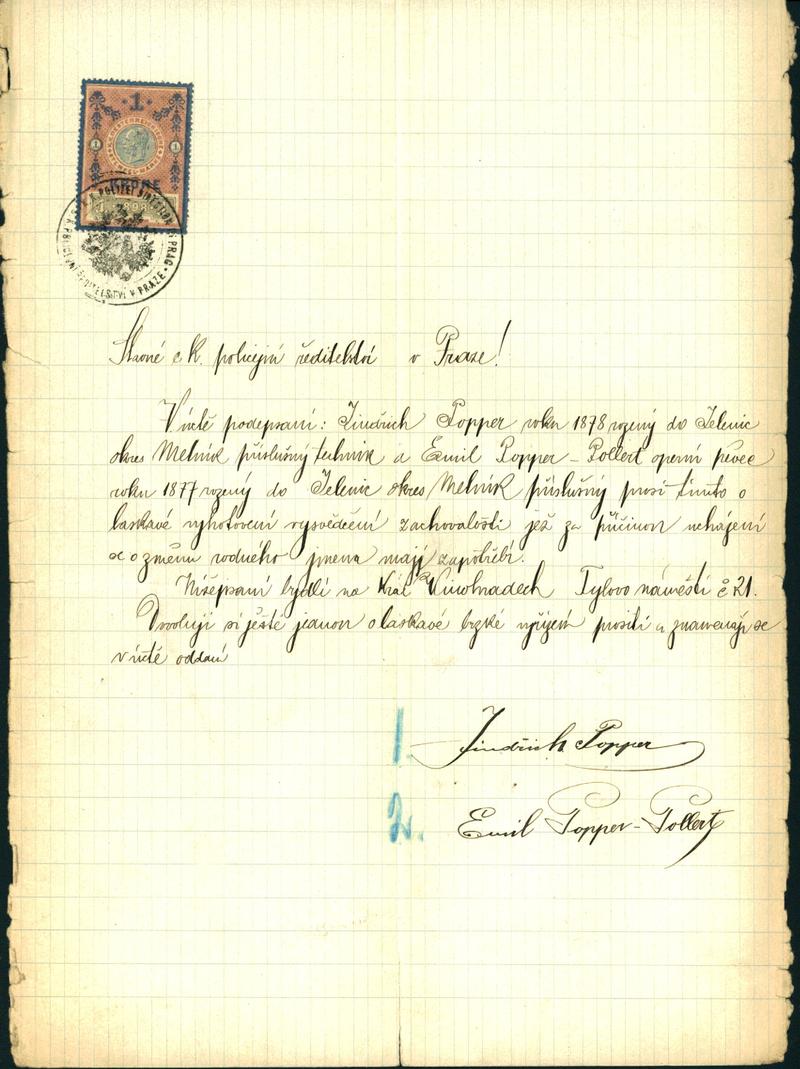 1
1 1
KRONE
1898
K. K. POLIZEI DIREKTION PRAG
Slavné c k. policejní ředitelství v Praze!
V úctě podepsaní: Jindřich Popper roku 1878 rozený do Jelenic
okres Melník příslušný technik a Emil Popper-Pollert operní pěvec
roku 1877 rozený do Jelenic okres Melník příslušný prosí tímto o
laskavé vyhotovení vysvědčení zachovalosti jež za příčinou ucházení
se o změnu rodného jmena mají zapotřebí.
Nížepsaní bydlí na Král Vinohradech Tylovo náměstí č 21.
Dovolují si ještě jednou o laskavé brzké vyřízení prositi a znamenají se
v úctě oddaní
1. Jindřich Popper
2. Emil Popper-Pollert